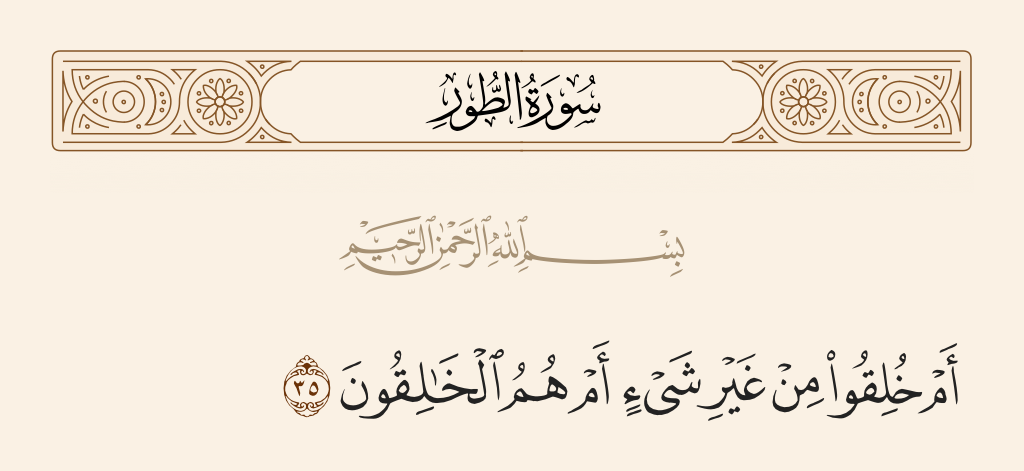 سُورَةُ الطُّورِ
بِسْمِ ٱللَّهِ ٱلرَّحْمَٰنِ ٱلرَّحِيمِ
أَمْ خُلِقُوا۟ مِنْ غَيْرِ شَىْءٍ أَمْ هُمُ ٱلْخَـٰلِقُونَ ٣٥